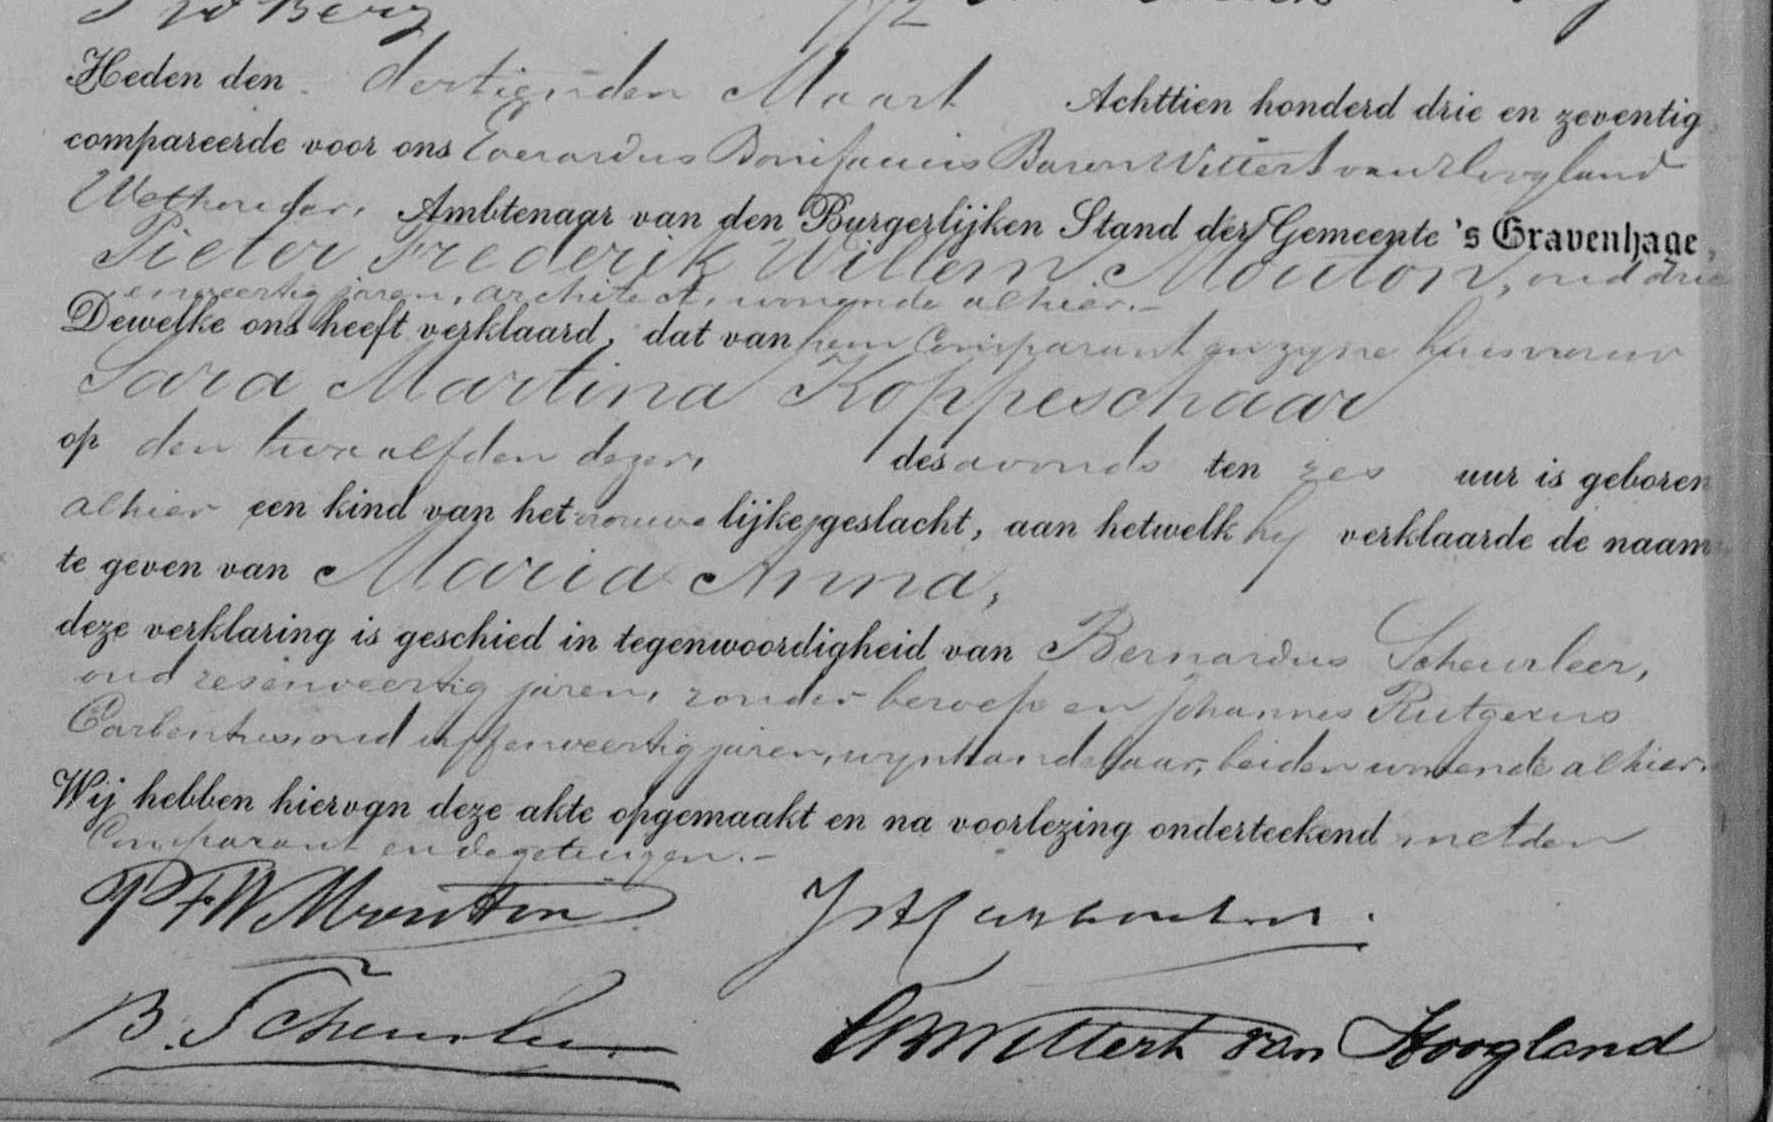 v d Berg
Heden den dertienden Maart Achttien honderd drie en zeventig
compareerde voor ons Everardus Bonifacius Baron Wittert van Hoogland
Wethouder, Ambtenaar van den Burgerlijken Stand der Gemeente 's Gravenhage,
Pieter Frederik Willem Mouton, oud drie
enveertig jaren, architect, wonende alhier.-
Dewelke ons heeft verklaard, dat van hem Comparant en zyne huisvrouw
Sara Martina Koppeschaar
op den twaalfden dezer, des avonds ten zes uur is geboren
alhier een kind van het vrouwelijke geslacht, aan hetwelk hy verklaarde de naam
te geven van Maria Anna,
deze verklaring is geschied in tegenwoordigheid van Bernardus Scheurleer,
oud zesenveertig jaren, zonder beroep en Johannes Rutgerus
Carbentus, oud vyffenveertig jaren, wynhandelaar, beiden wonende alhier.
Wij hebben hiervan deze akte opgemaakt en na voorlezing onderteekend met den
Comparant en de getuigen.-
PFW Mouton
B. Scheurleer
Wittert van Hoogland